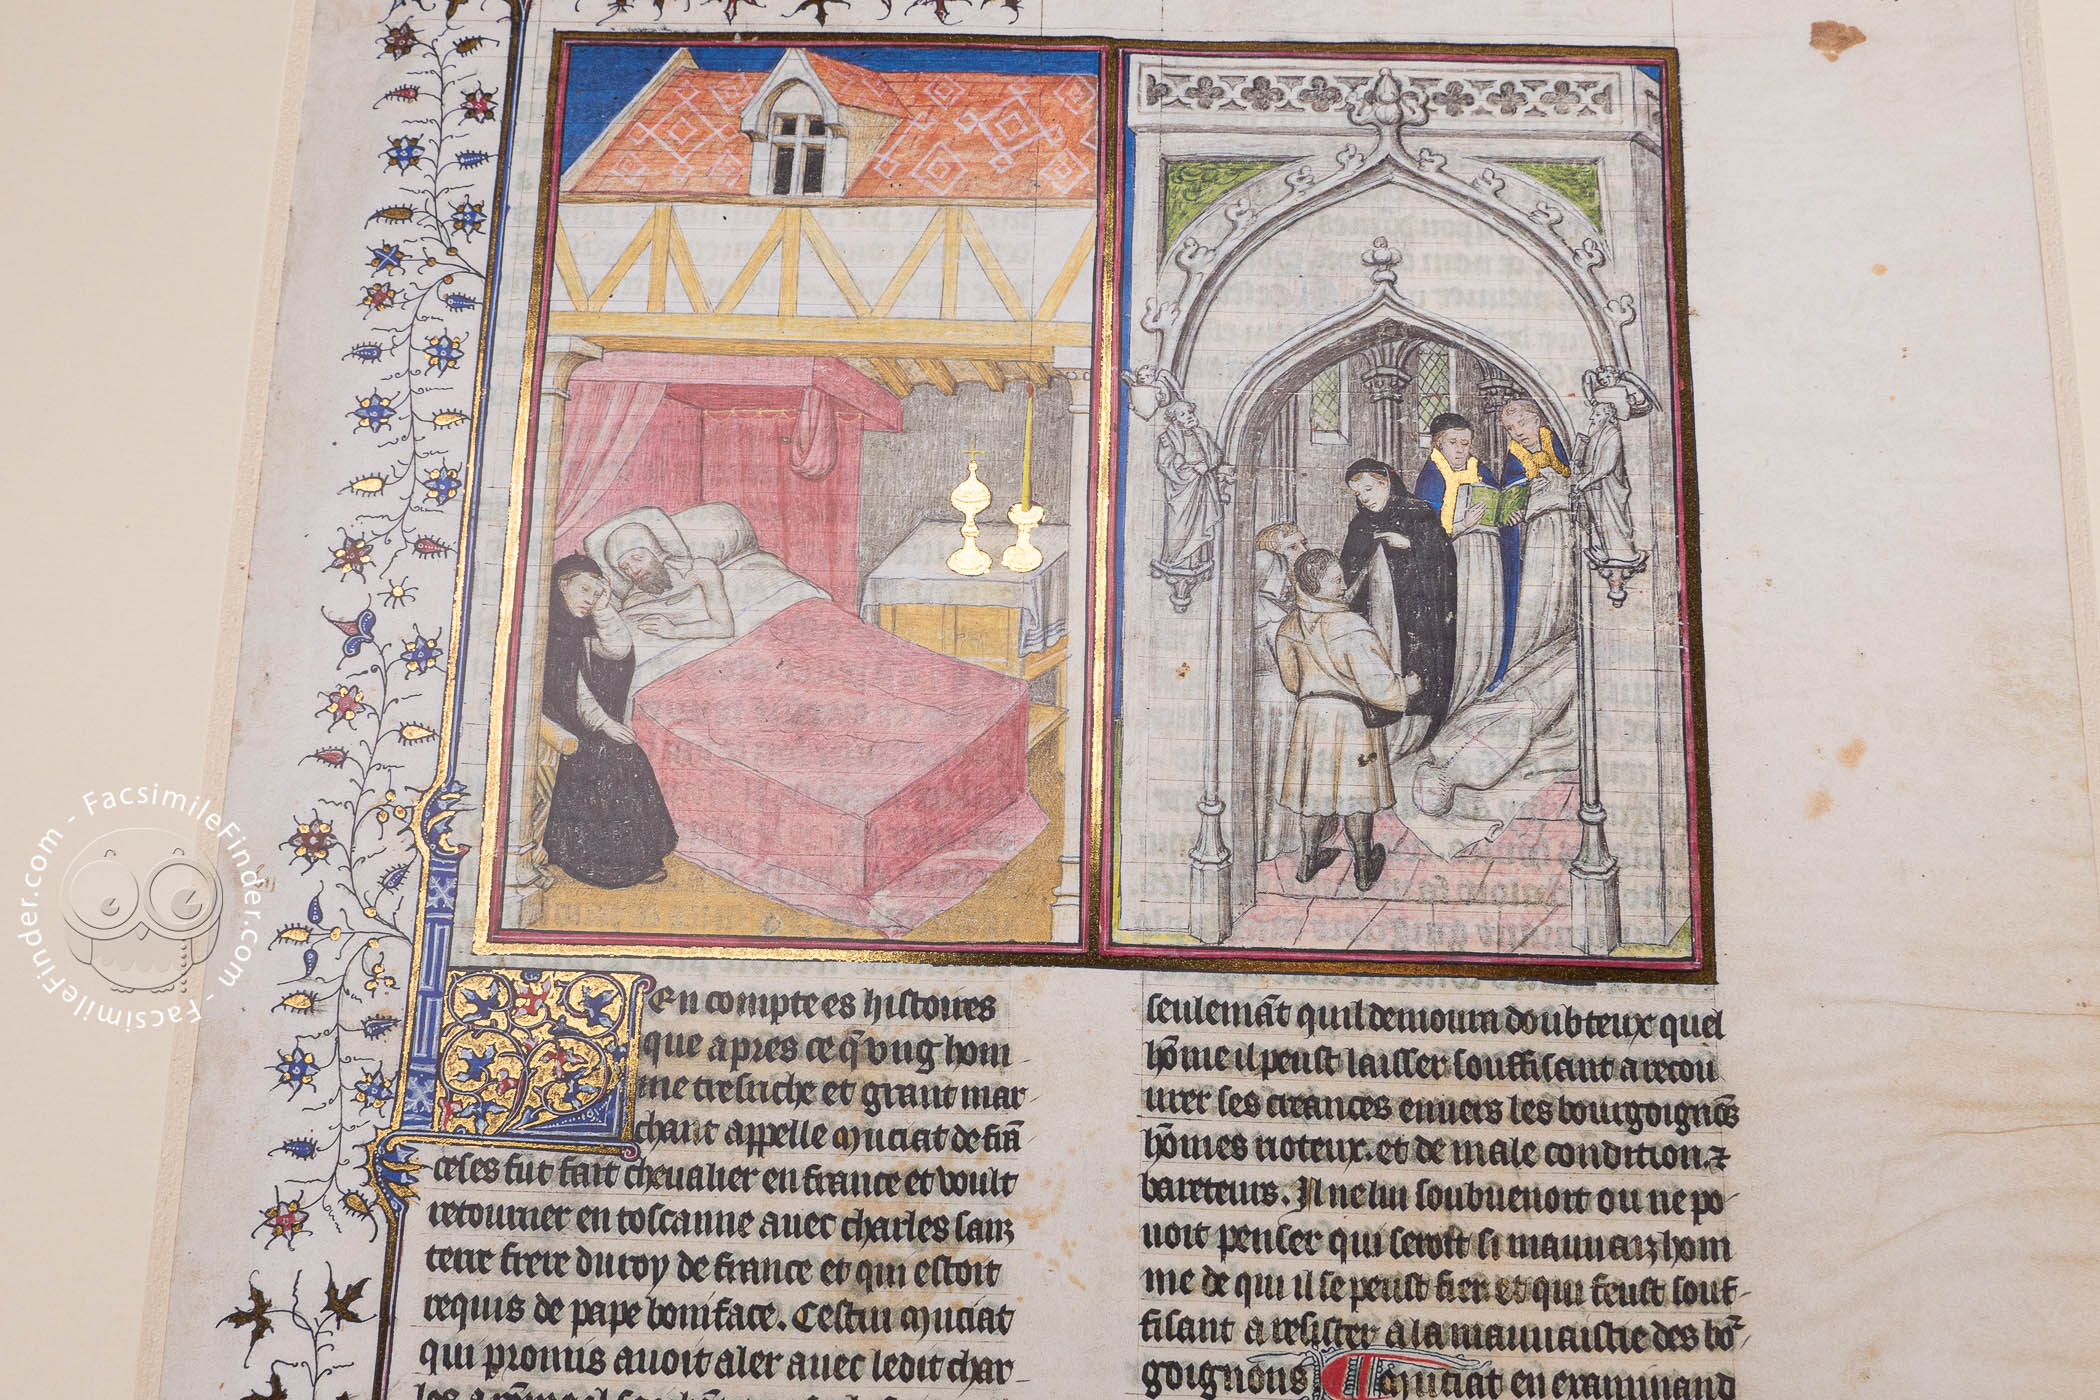 En compte es histoires
que apres ce q̄ vng hom-
me tresriche et grant mar-
chant appelle Muciat de frā
ceses fut fait cheualier en france et voult
retourner en toscanne auec charles sanz
terre frere du roy de france et qui estoit
requis de pape boniface. Cestui Muciat
qui promis auoit aler auec ledit char-
seulemāt quil demoura doubteux quel
hōme il peust laisser souffisant a recou
urer ses creances enuers les bourgoignōs
hōmes rioteux. et de male condition. ⁊
bareteurs. Il ne lui souuenoit ou ne po-
uoit penser qui seroit si mauuaiz hom
me de qui il se peust fier et qui feust souf-
fisant a resister a la mauuaistie des bo-
goignons Muciat en examinand
FacsimileFinder.com - FacsimileFinder.com - FacsimileFinder.com